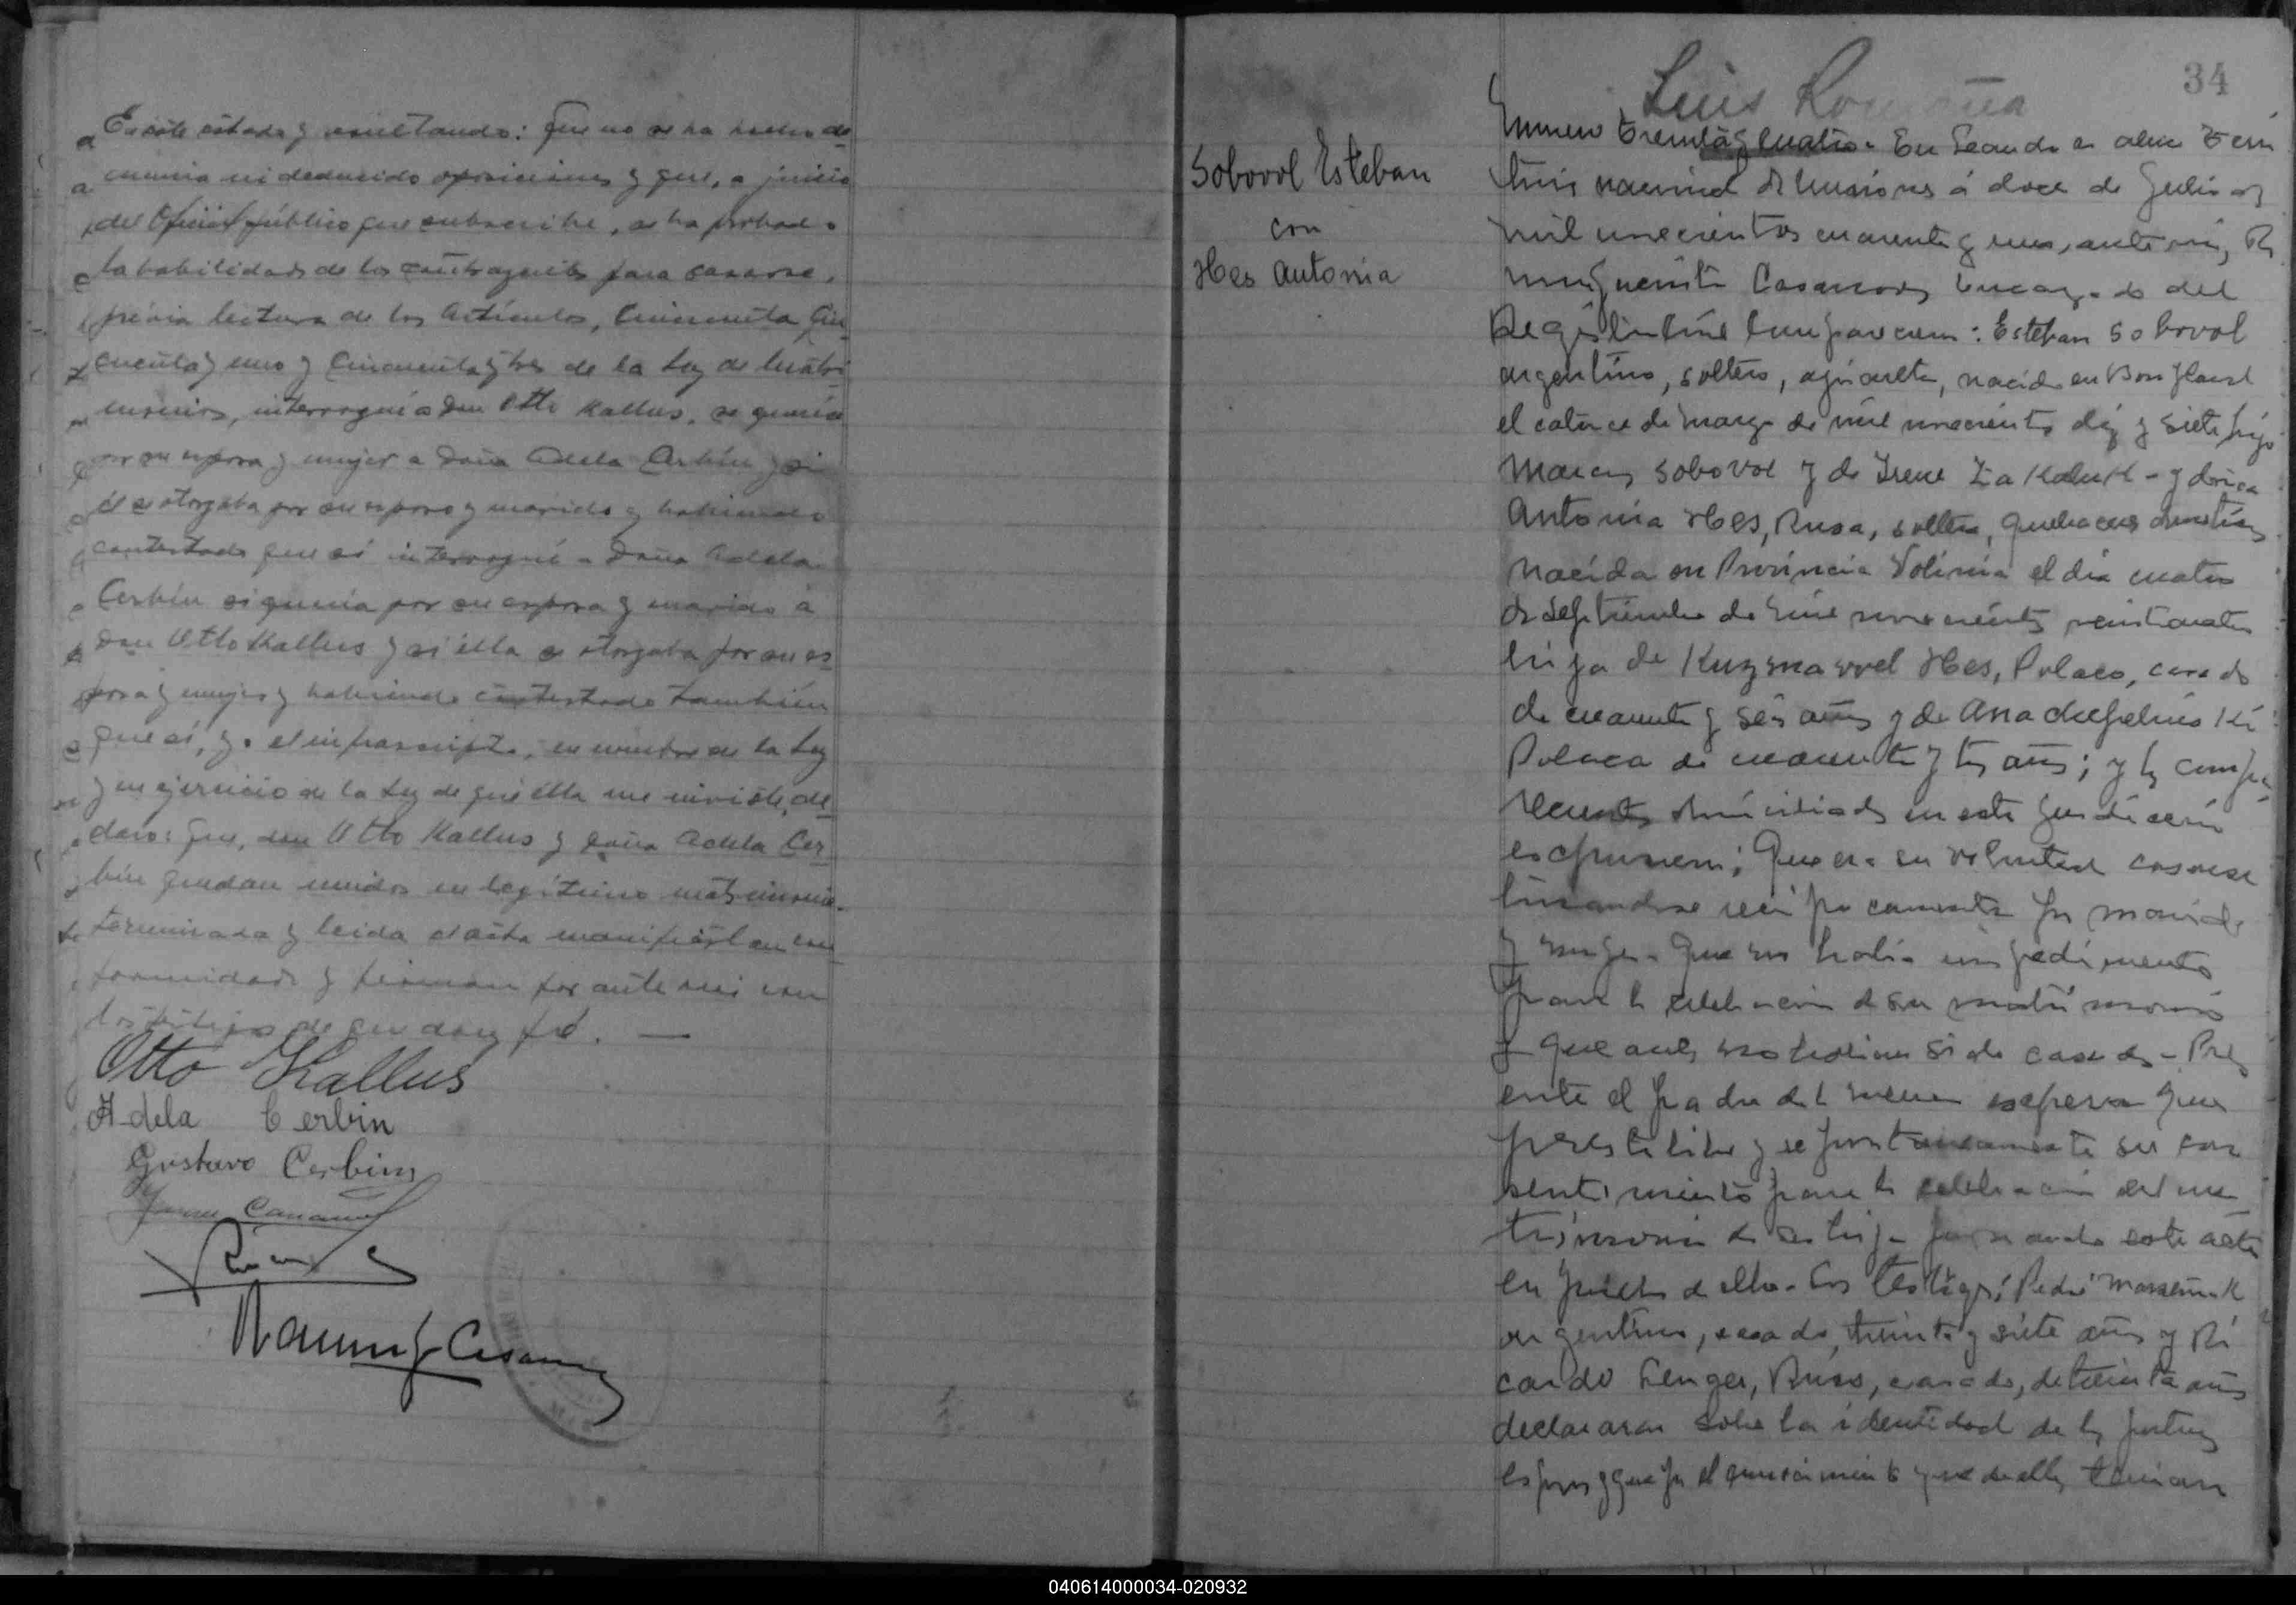 En este estado y resultando: Que no se ha hecho de
nuncia ni deducido oposiciones y que, a juicio
del Oficial público que subscribe, se ha probado
la habilidad de los contrayentes para casarse,
prévia lectura de los Artículos, Cincuenta Cin
cuenta y uno y Cincuenta y tres de la Ley de Matri
monios, interrogué a Don Otto Kallus, se queria
por su esposa y mujer a Doña Adela Cerbin y si
él se otorgaba por su esposo y marido y habiendo
contestado que sí interrogué a Doña Adela
Cerbin si queria por su esposo y marido a
Don Otto Kallus y si ella se otorgaba por su es
posa y mujer y habiendo contestado también
que sí, yo el infrascripto, en nombre de la Ley
y en ejercicio de la Ley de que ella me inviste, de
claro: Que, don Otto Kallus y doña Adela Cer
bin quedan unidos en legítimo matrimonio.
terminada y leida el acta manifiestan con
formidad y firman por ante mi con
los testigos de que doy fé. —
Otto Kallus
Adela Cerbin
Gustavo Cerbin
34
Luis
Sobovol Esteban
con
Hes Antonia
Número treinta y cuatro. En Leandro N. Alem Terri
torio nacional de Misiones á doce de Julio de
mil novecientos cuarenta y uno, ante mi,
Casanova Encargado del
Registro Civil comparecen: Esteban Sobovol
argentino, soltero, agricultor, nacido en Bonpland
el catorce de Marzo de mil novecientos diez y siete hijo
Marcos Sobovol y de Irene - y doña
Antonia Hes, Rusa, soltera, quehaceres domésticos
nacida en Provincia Volinia el dia cuatro
de Septiembre de mil novecientos veinticuatro
hija de Hes, Polaco, casado
de cuarenta y seis años y de Ana
Polaca de cuarenta y tres años; y los compa
recientes domiciliados en esta jurisdicción
exponen: Que era su voluntad casarse
tomandose recíprocamente por marido
y mujer. Que no había impedimento
para la celebración de su matrimonio
y que antes no habian sido casados - Pres
ente el padre de la menor expresa que
presta libre y espontaneamente su con
sentimiento para la celebración del ma
trimonio de su hija firmando este acta
en prueba de ello. Los testigos: Pedro
argentino, casado, treinta y siete años y Ri
cardo Senger, Ruso, casado, de treinta años
declararon sobre la identidad de los futuros
esposos y que por el conocimiento que de ellos tenian
040614000034-020932